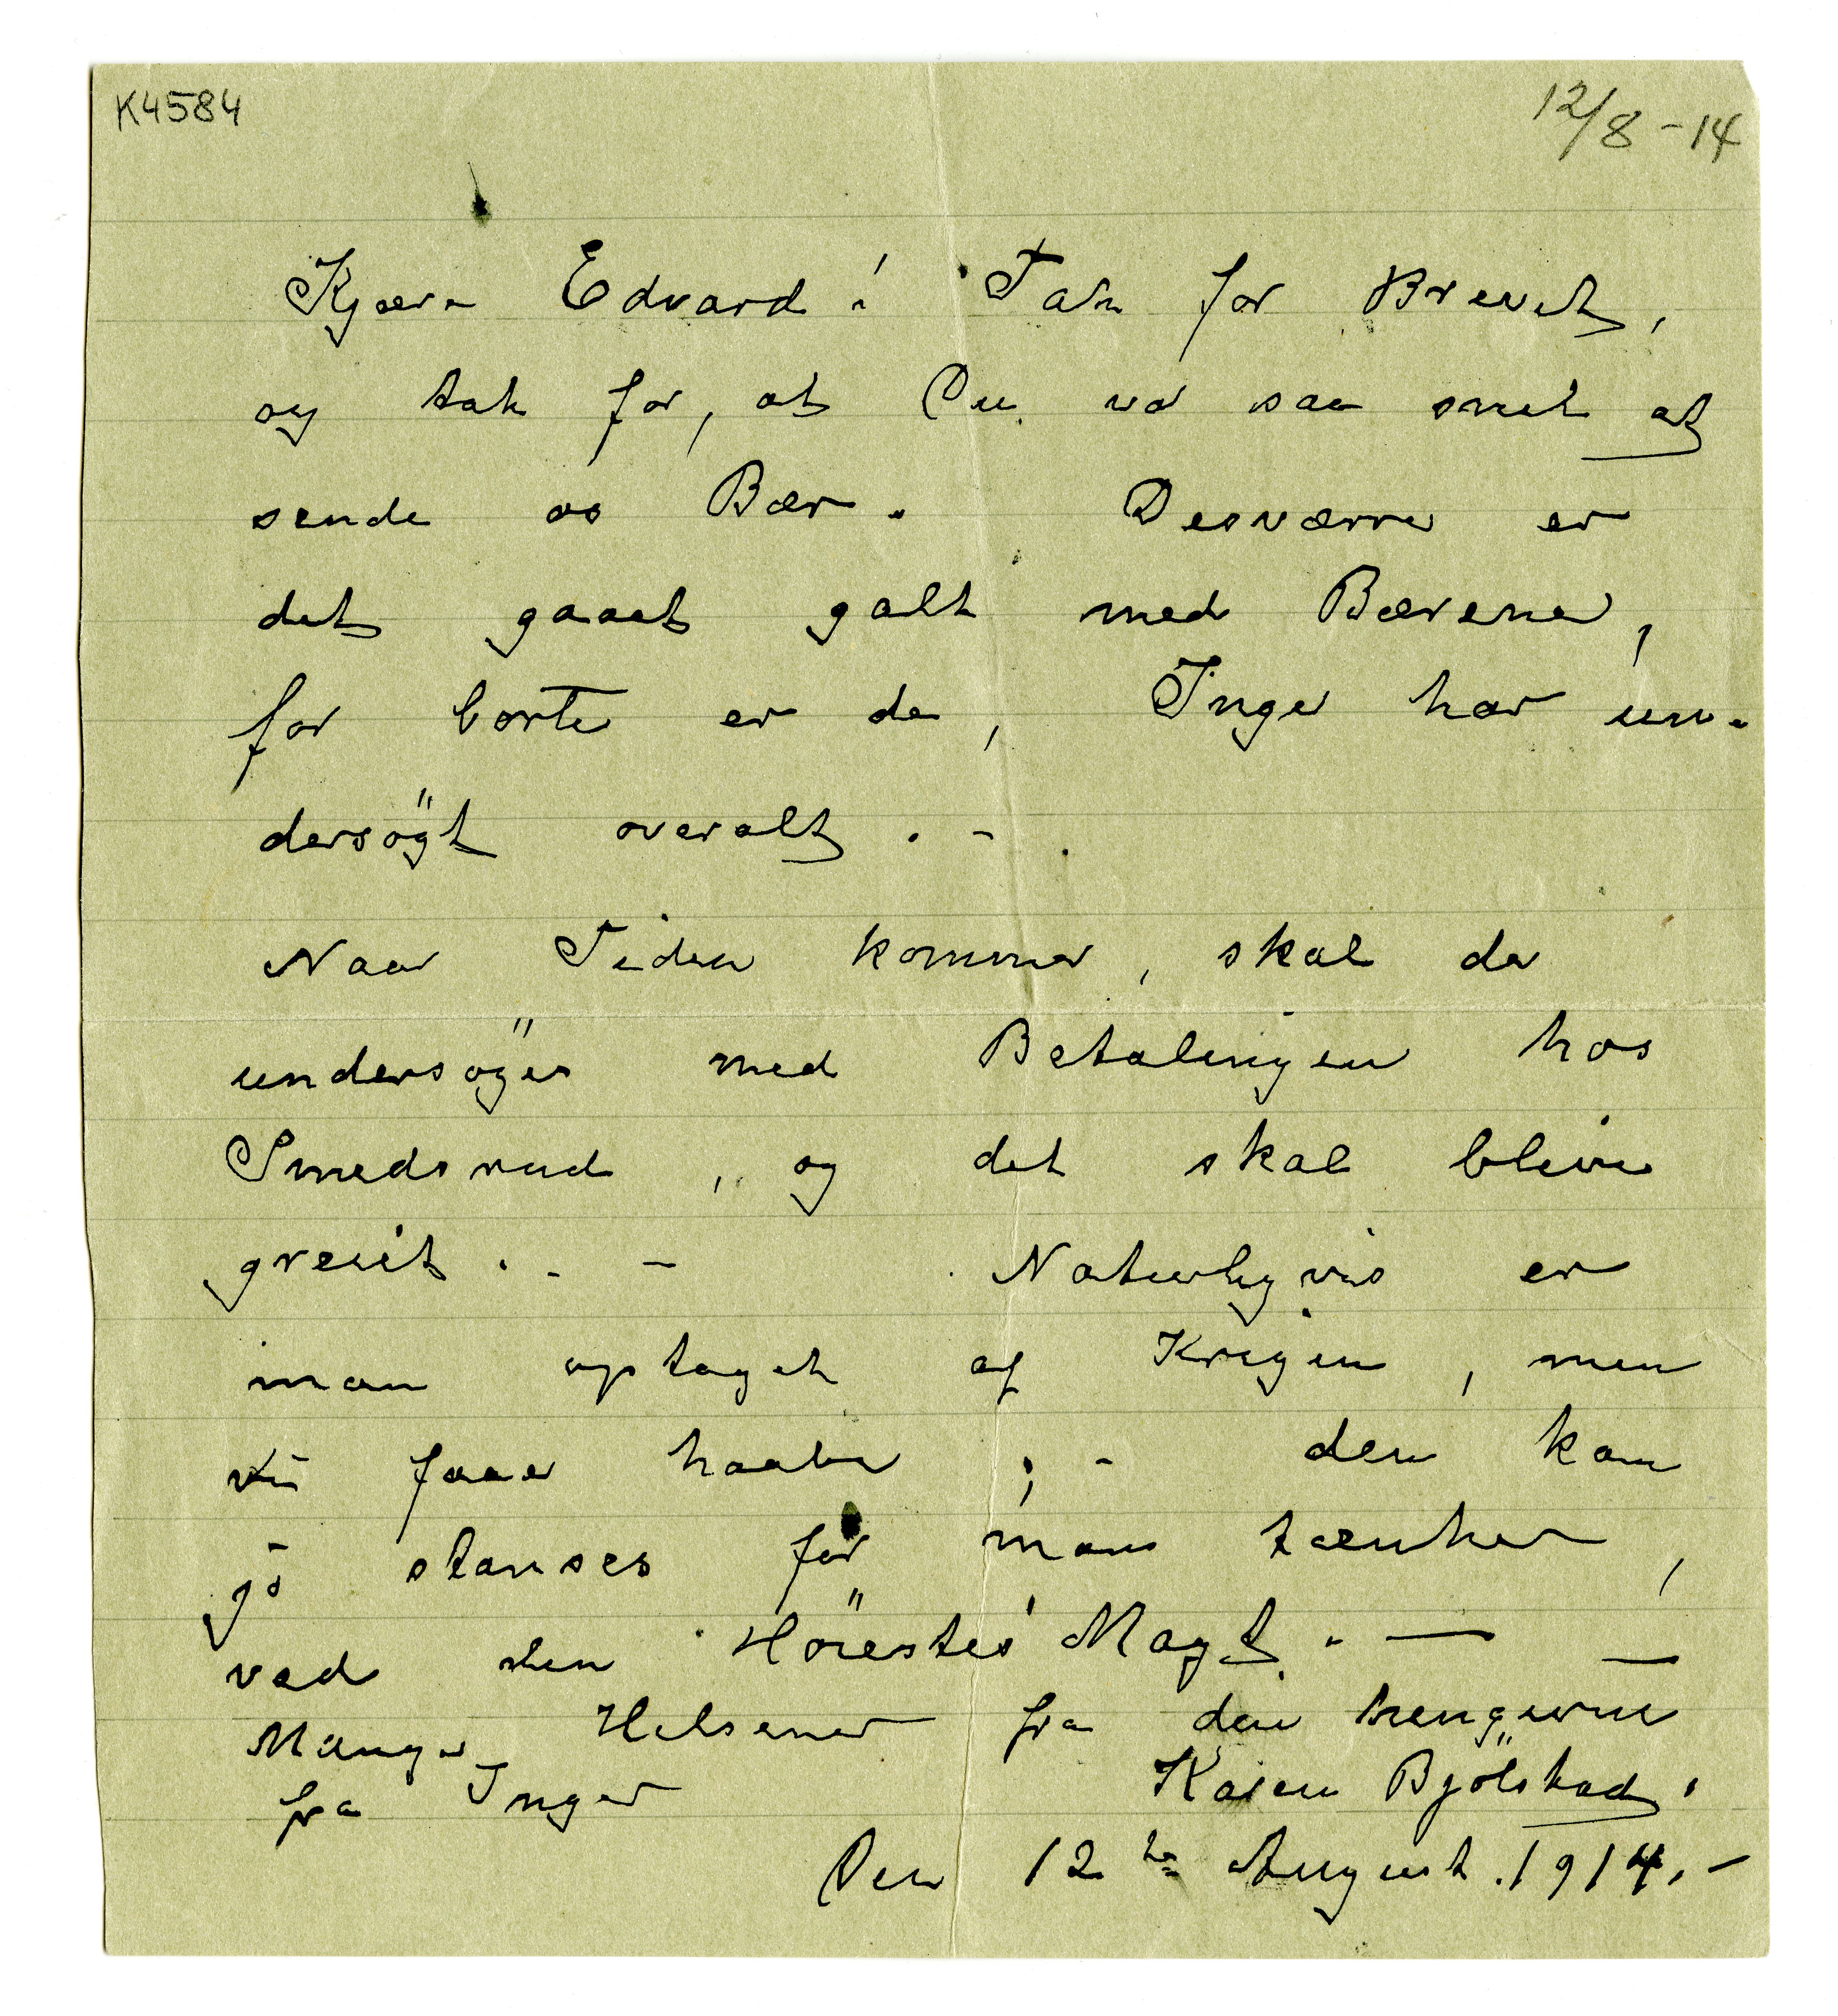 K4584
12/8 - 14
Kjære Edvard! Tak for Brevet,
og tak for, at Du var saa snil at
sende os Bær. Desværre er
det gaaet galt med Bærene,
for borte er de, Inger har un-
dersögt overalt. -
Naar Tiden kommer, skal de
undersöges med Betalingen hos
Smedsrud, og det skal blive
greiit. - Naturligvis er
man optaget af Krigen, men
vi faar haabe; - den kan
jo stanses før man tænker,
ved den Höiestes Magt. —
Mange Hilsener fra din hengivne
fra Inger Karen Bjölstad.
Den 12te August. 1914. -